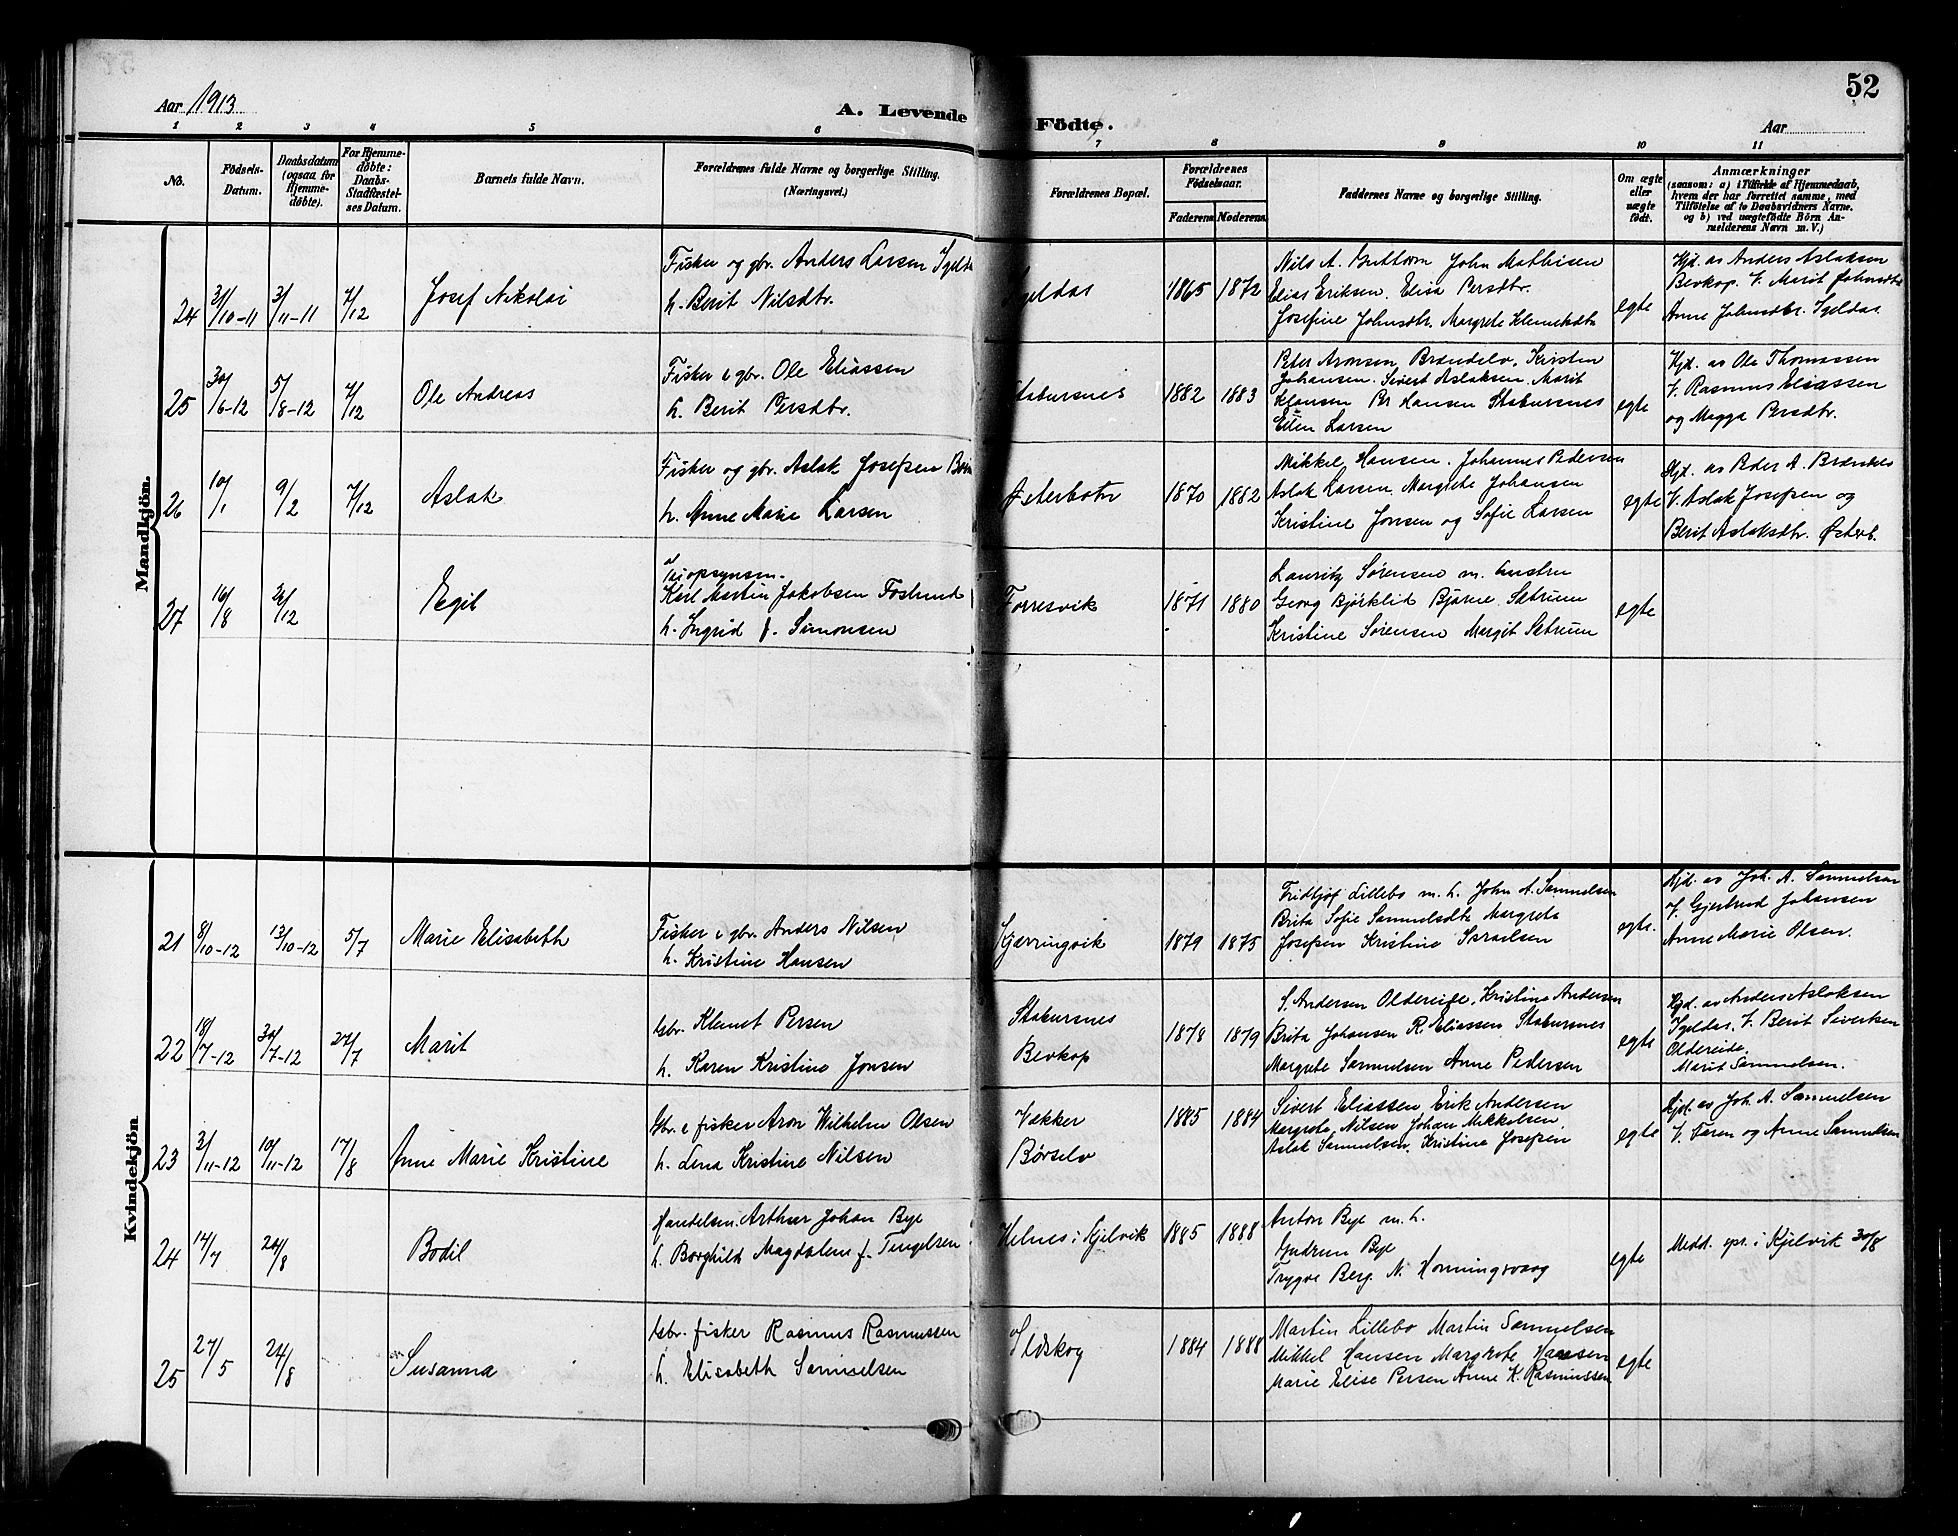 52
Aar 1913
A. Levende Födte.
Aar
1 2 3 4 5 6 7 8 9 10 11
No.
Födsels-Datum.
Daabsdatum (ogsaa for Hjemme-döbte).
For Hjemme-döbte: Daabs-Stadfæstel-ses Datum.
Barnets fulde Navn.
Forældrenes fulde Navne og borgerlige Stilling. (Næringsvei.)
Forældrenes Bopæl.
Forældrenes Födselsaar.
Faderens Moderens
Faddernes Navne og borgerlige Stilling.
Om ægte eller uægte födt.
Anmærkninger
(saasom: a) i Tilfælde af Hjemmedaab, hvem der har forrettet samme, med Tilföielse af to Daabsvidners Navne. og b) ved uægtefödte Börn Anmelderens Navn m. V.)
Mandkjön.
24 31/10-11 3/11-11 7/12 Josef Nikolai
Fisker og gbr. Anders Larsen Igeldas
h. Berit Nilsdtr.
Igeldas 1865 1872
Nils A. Guttorm John Mathisen
Elias Eriksen. Elisa Persdtr.
Josefine Johnsdtr. Margrete Klemetsdtr
egte
Hjd. av Anders Aslaksen
Bevkop. V. Marit Johnsdtr
Anne Johnsdtr. Igeldas.
25 30/6-12 5/8-12 7/12 Ole Andreas
Fisker & gbr. Ole Eliassen
h. Berit Persdtr.
Stabursnes 1882 1883
Peter Aronsen, Brændelv, Kristen
Johansen. Sivert Aslaksen. Marit
Klausen Per Hansen Stabursnes
Ellen Larsen
egte
Hjd. av Ole Thomassen
V. Rasmus Eliassen
og Magga Persdtr.
26 10/1 9/2 7/12 Aslak
Fisker og gbr. Aslak Josefsen
h. Anne Marie Larsen
Østerbotn 1870 1882
Mikkel Hansen. Johannes Pedersen
Aslak Larsen. Margrete Johansen
Kristine Jonsen og Sofie Larsen
egte
Hjd. av Peder A.
V. Aslak Josefsen og
Berit Aslaksdtr. Østerb.
27 16/8 26/12 Egil
Karl Martin Jakobsen Foslund
h. Ingrid f. Simonsen
Torresvik 1871 1880
Lauritz Sørensen m. hustru
Georg Bjørklid Bjarne Sætrum
Kristine Sørensen Margit Sætrum
egte
Kvindekjön
21 8/10-12 13/10-12 5/7 Marie Elisabeth
Fisker & gbr. Anders Nilsen
h. Kristine Hansen
Kjærringvik 1879 1875
Fridtjof Lillebo m. h. John A. Samuelsen
Brita Sofie Samuelsdtr Margrete
Josefsen Kristine Israelsen
egte.
Hjd. av Joh. A. Samuelsen
V. Gjertrud Johansen
Anne Marie Olsen.
22 18/7-12 30/7-12 27/7 Marit
Gbr. Klemet Persen
h. Karen Kristine Jonsen
Stabursnes
Bevkop
1878 1879
S. Andersen Oldereide. Kristine Andersen
Brita Johansen R. Eliassen Stabursnes
Margrete Samuelsen Anne Pedersen
egte
Hjd. av Anders Aslaksen
Igeldas, V. Berit Sivertsen
Oldereide,
Marit Samuelsen.
23 3/11-12 10/11-12 17/8 Anne Marie Kristine
Gbr. & fisker Aron Wilhelm Olsen
h. Lena Kristine Nilsen
Vækker
Børselv
1885 1884
Sivert Eliassen Erik Andersen
Margrete Nilsen Johan Mikkelsen
Aslak Samuelsen. Kristine Josefsen
egte
Hjd. av Joh. A. Samuelsen
V. Faren og Anne Samuelsen
24 14/7 24/8 Bodil
Handelsm. Arthur Johan Bye
h. Borghild Magdalene f. Tengelsen
Helnes i Kjelvik 1885 1888
Anton Bye m. h.
Gudrun Bye
Trygve Berg N. Honningsvaag
egte
Medd. spr. i Kjelvik 30/8
25 27/5 24/8 Susanna
Gbr. fisker Rasmus Rasmussen
h. Elisabeth Samuelsen
Ildskog 1884 1888
Martin Lillebo Martin Samuelsen
Mikkel Hansen Margrete Hansen
Marie Elise Persen Anne K. Rasmussen
egte